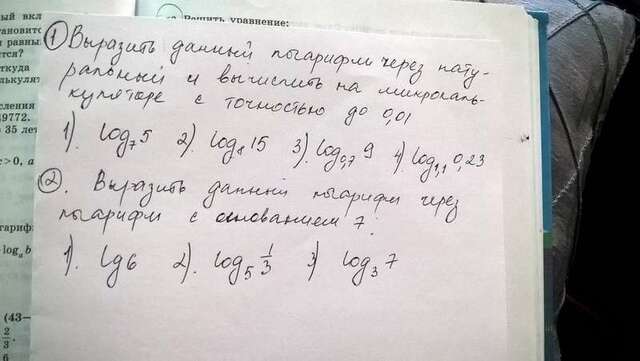 ый вкл
тановитс
и равны
тся?
ткуда
лькулят
сления
19772.
35 лет
c>0, a
гарифм
log_a b
(43−
2/3
6
Решить уравнение:
① Выразить данный логарифм через нату-
ральный и вычислить на микрокаль-
куляторе с точностью до 0,01
1). log₇5 2). log₈15 3). log₀,₇9 4). log₁,₁0,23
②. Выразить данный логарифм через
логарифм с основанием 7.
1). lg6 2). log₅ 1/3 3) log₃7